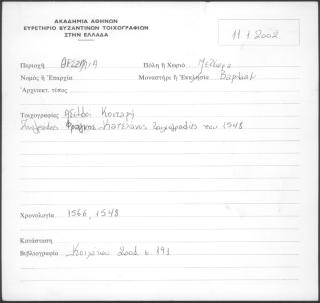 ΑΚΑΔΗΜΙΑ ΑΘΗΝΩΝ
ΕΥΡΕΤΗΡΙΟ ΒΥΖΑΝΤΙΝΩΝ ΤΟΙΧΟΓΡΑΦΙΩΝ
ΣΤΗΝ ΕΛΛΑΔΑ
11.1.2002
Περιοχή ΘΕΣΣΑΛΙΑ Πόλη ἤ Χωριό Μετέωρα
Νομός ἤ Ἐπαρχία Μοναστήρι ἤ Ἐκκλησία Βαρλαάμ
Ἀρχιτεκτ. τύπος
Τοιχογραφίες Ἀδελφοί Κονταρή
Φράγκος Κατελάνος τοιχογραφίες του 1548
Χρονολογία 1566, 1548
Κατάσταση
Βιβλιογραφία 2001 σ 191